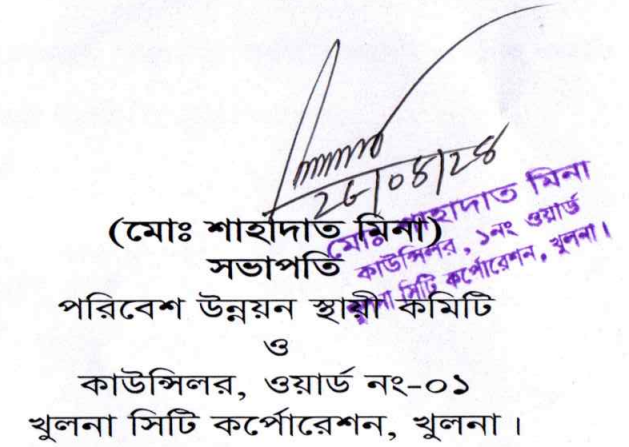 (মোঃ শাহাদাত মিনা)
সভাপতি
পরিবেশ উন্নয়ন স্থায়ী কমিটি
ও
কাউন্সিলর, ওয়ার্ড নং-০১
খুলনা সিটি কর্পোরেশন, খুলনা।
মোঃ শাহাদাত মিনা
কাউন্সিলর, ১নং ওয়ার্ড
খুলনা সিটি কর্পোরেশন, খুলনা।